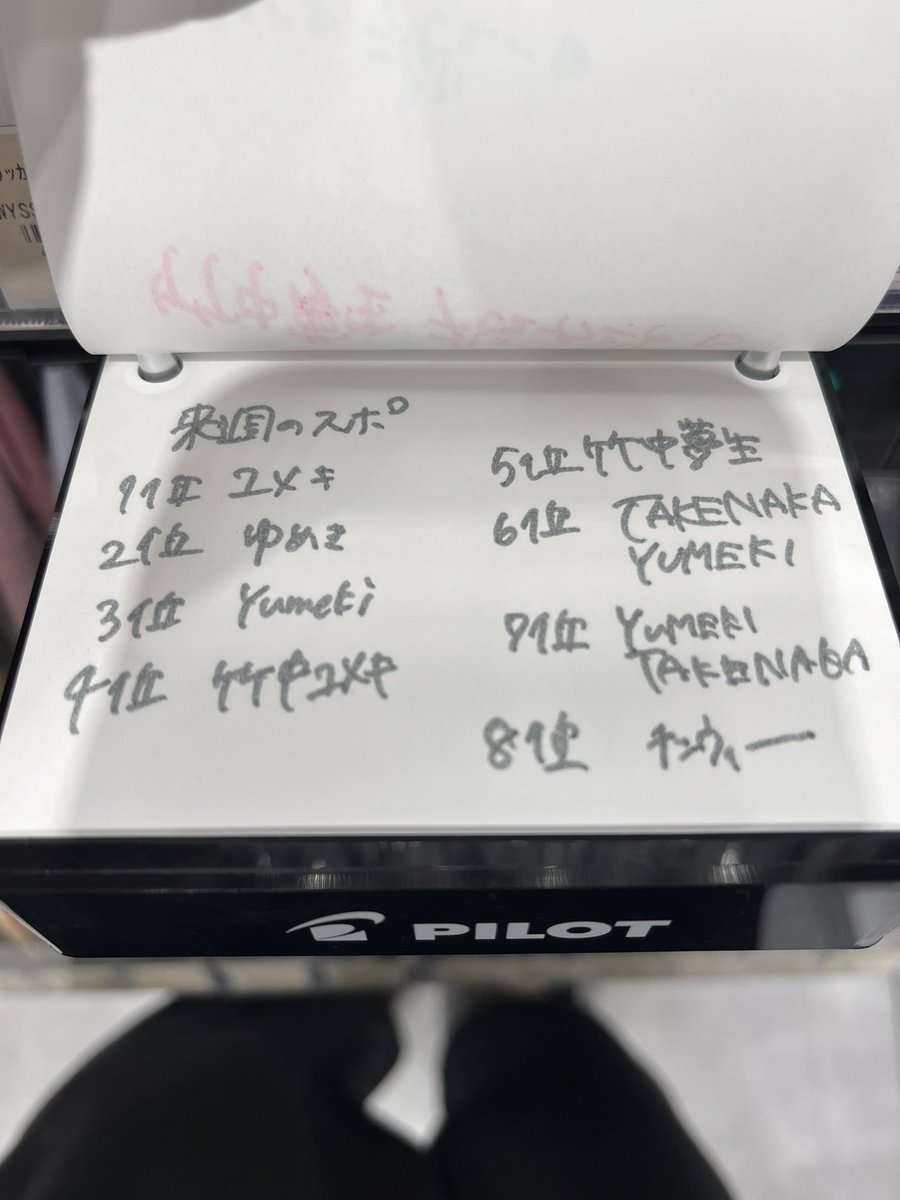 来週のスポ
1位 ユメキ
2位 ゆめき
3位 Yumeki
4位 竹中ユメキ
5位 竹中夢生
6位 TAKENAKA
YUMEKI
7位 YUMEKI
TAKENAGA
8位 チンウィー
PILOT